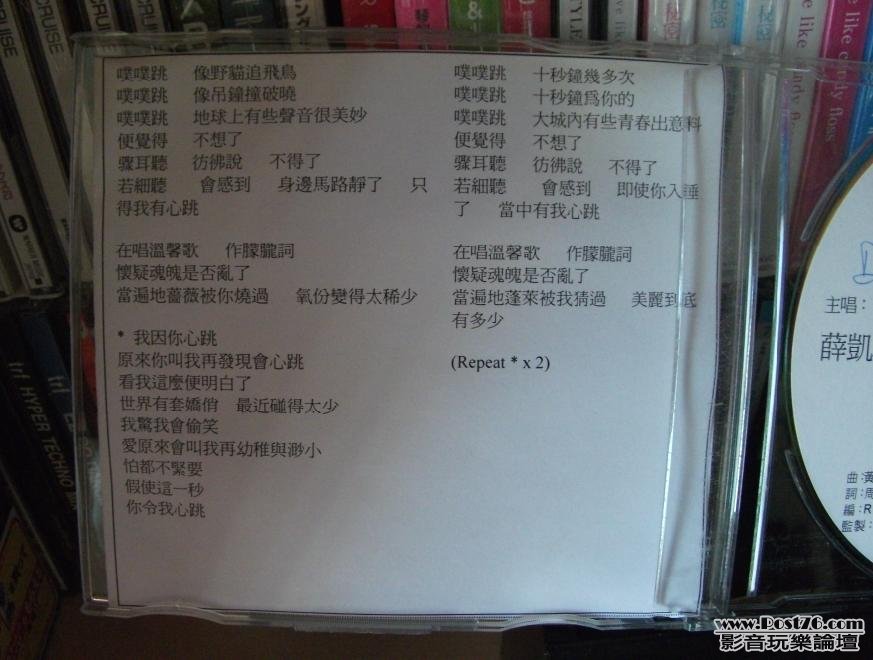 噗噗跳 像野貓追飛鳥
噗噗跳 像吊鐘撞破曉
噗噗跳 地球上有些聲音很美妙
便覺得 不想了
骤耳聽 彷彿說 不得了
若細聽 會感到 身邊馬路靜了 只
得我有心跳
在唱溫馨歌 作朦朧詞
懷疑魂魄是否亂了
當遍地薔薇被你燒過 氧份變得太稀少
* 我因你心跳
原來你叫我再發現會心跳
看我這麼便明白了
世界有套嬌俏 最近碰得太少
我驚我會偷笑
愛原來會叫我再幼稚與渺小
怕都不緊要
假使這一秒
你令我心跳
噗噗跳 十秒鐘幾多次
噗噗跳 十秒鐘爲你的
噗噗跳 大城內有些青春出意料
便覺得 不想了
骤耳聽 彷彿說 不得了
若細聽 會感到 即使你入睡
了 當中有我心跳
在唱溫馨歌 作朦朧詞
懷疑魂魄是否亂了
當遍地蓬萊被我猜過 美麗到底
有多少
(Repeat * x 2)
主唱：
薛凱
曲：黃
詞：周
編：R
監製：
CRUISE
trf HYPER TECHNO
like candy floss
www.Post76.com
影音玩樂論壇